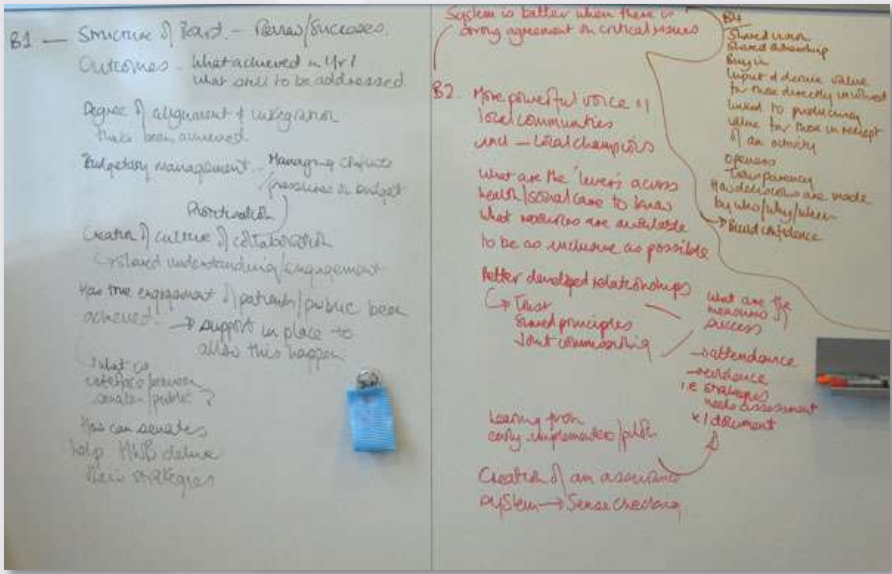 B1 — Structure of Board. — Review/Successes.
Outcomes - what achieved in Yr 1
what still to be addressed
Degree of alignment & integration
that's been achieved
Budgetary management - Managing
pressures on budget
Prioritisation
Creation of culture of collaboration
→ shared understanding/engagement
Has true engagement of patients/public been
achieved. → support in place to
allow this happen
what is
between
senates/public?
How can senates
help HWB deliver
their strategies
System is better when there is
strong agreement on critical issues
B2. More powerful voice of
local communities
and — local champions
what are the 'levers' across
health/social care to know
what resources are available
to be as inclusive as possible
Better developed relationships
→ Trust
Shared principles
Joint commissioning
what are the
measures of
success
→ attendance
→ evidence
i.e strategies
needs assessment
x1 document
Learning from
early implementers/pilots
Creation of an assurance
system → Sense checking
B4
Shared vision
Shared ownership
Buy in
Input & derive value
for those directly involved
linked to producing
value for those in receipt
of an activity
openness
Transparency
How decisions are made
by who/why/when
→ Build confidence